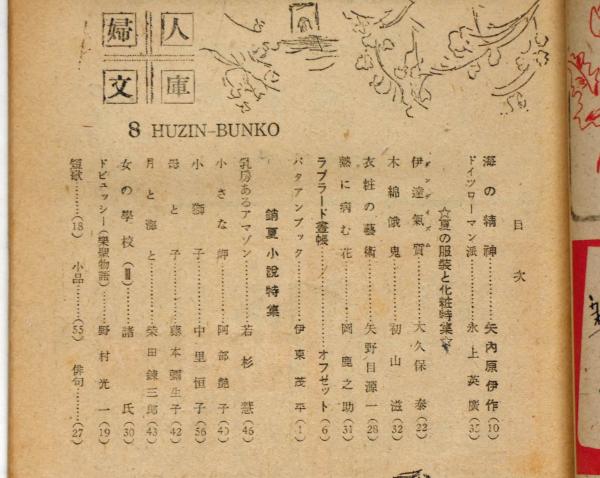 婦人文庫
8 HUZIN-BUNKO
目次
海の精神…………矢內原伊作(10)
ドイツローマン派…………永上英廣(35)
☆夏の服裝と化粧特集☆
伊達氣質…………大久保泰(22)
木綿餓鬼…………初山滋(32)
衣粧の藝術…………矢野目源一(28)
熱に病む花…………岡鹿之助(31)
ラプラード畫帳…………オフゼット(6)
バタアンブック…………伊東茂平(1)
銷夏小說特集
乳房あるアマゾン…………若杉慧(46)
小さな岬…………阿部艶子(40)
小獅子…………中里恒子(56)
母と子…………藤本彌生子(42)
月と海と…………榮田錬三郎(43)
女の學校(Ⅲ)…………諸氏(30)
ドビュッシー(樂聖物語)…………野村光一(19)
短歌………(18) 小品………(55) 俳句………(27)